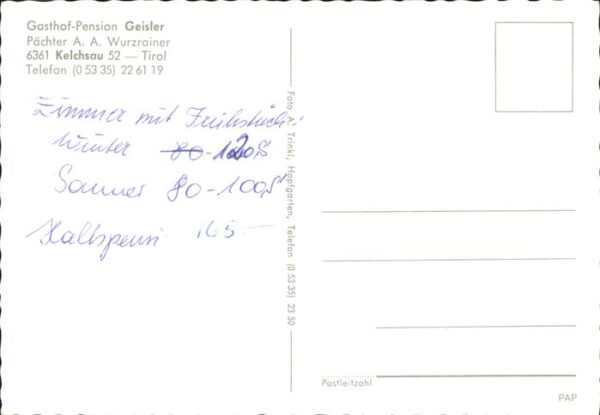 Gasthof-Pension Geisler
Pächter A. A. Wurzrainer
6361 Kelchsau 52 — Tirol
Telefon (0 53 35) 22 61 19
Zimmer mit Frühstück:
Winter 80-120S
Sommer 80-100S
Halbpens. 165.—
Foto A. Trinkl, Hopfgarten, Telefon (0 53 35) 23 50
Postleitzahl
PAP